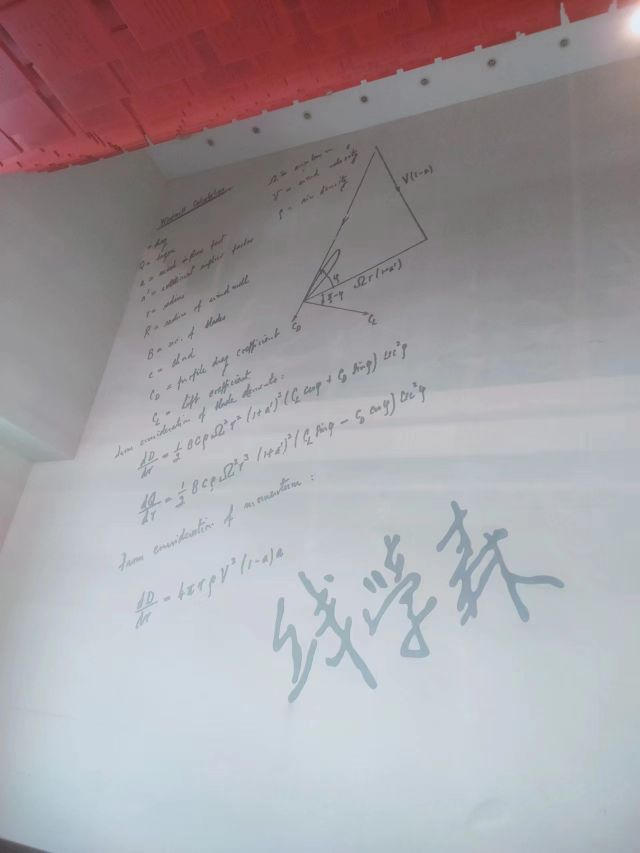 Windmill Calculation
D = drag
Q = torque
a = axial inflow fact
a' = rotational inflow factor
r = radius
R = radius of windmill
B = no. of blades
c = chord
C_D = profile drag coefficient
C_L = lift coefficient
V = wind velocity
ρ = air density
V(1-a)
φ
Ωr(1+a')
C_D
C_L
From consideration of blade elements:
dD/dr = 1/2 B c ρ Ω² r² (1+a')² (C_L cosφ + C_D sinφ) sec²φ
dQ/dr = 1/2 B c ρ Ω² r³ (1+a')² (C_L sinφ - C_D cosφ) sec²φ
From consideration of momentum:
dD/dr = 4πrρV²(1-a)a
钱学森